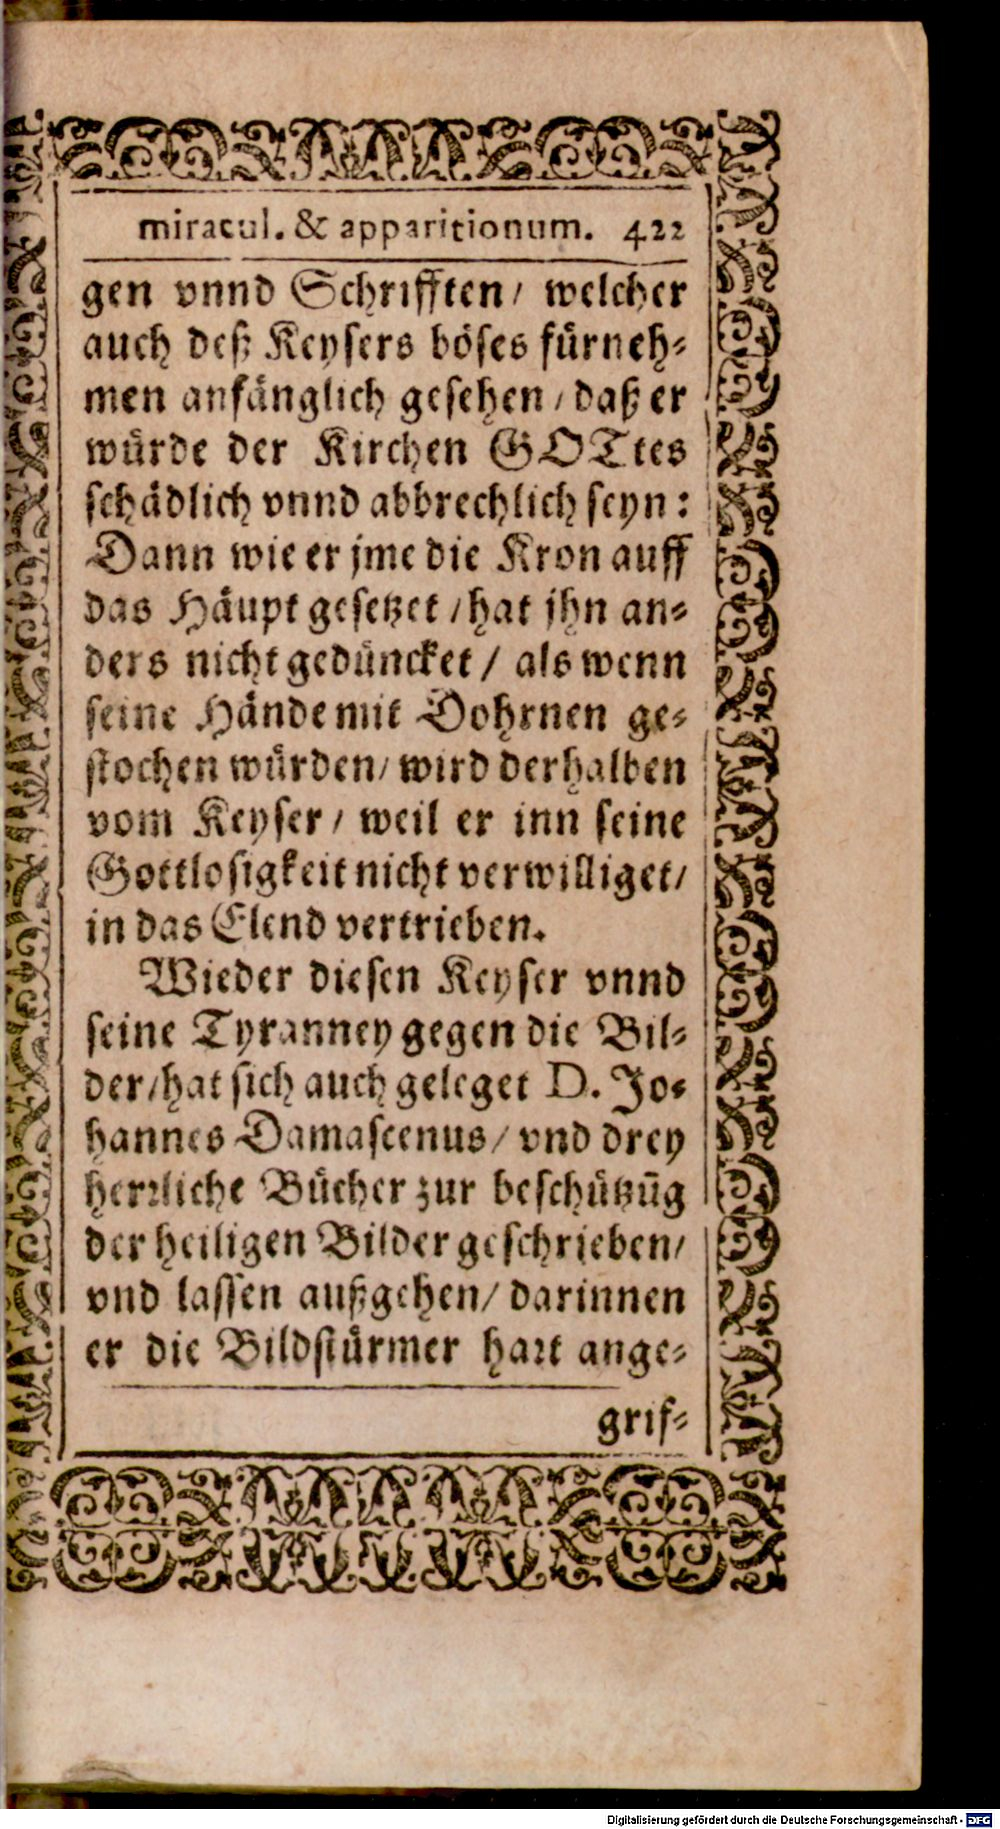 miracul. & apparitionum. 422
gen vnnd Schrifften/ welcher
auch deß Keysers böses fürneh-
men anfänglich gesehen/ daß er
würde der Kirchen GOTtes
schädlich vnnd abbrechlich seyn:
Dann wie er jme die Kron auff
das Häupt gesetzet/ hat jhn an-
ders nicht gedüncket/ als wenn
seine Hände mit Dohrnen ge-
stochen würden/ wird derhalben
vom Keyser/ weil er inn seine
Gottlosigkeit nicht verwilliget/
in das Elend vertrieben.
Wieder diesen Keyser vnnd
seine Tyranney gegen die Bil-
der/ hat sich auch geleget D. Jo-
hannes Damascenus/ vnd drey
herrliche Bücher zur beschützūg
der heiligen Bilder geschrieben/
vnd lassen außgehen/ darinnen
er die Bildstürmer hart ange-
grif-
Digitalisierung gefördert durch die Deutsche Forschungsgemeinschaft - DFG